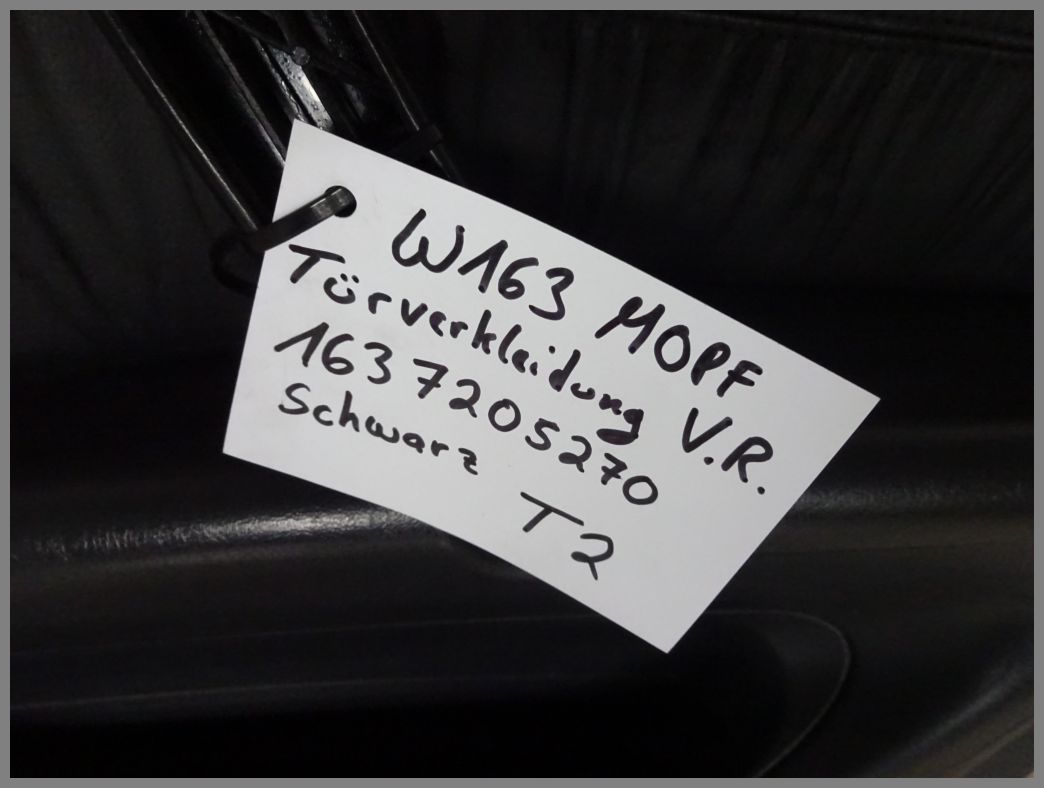 W163 MOPF
Törverkleidung V.R.
163 7205270
Schwarz
T2